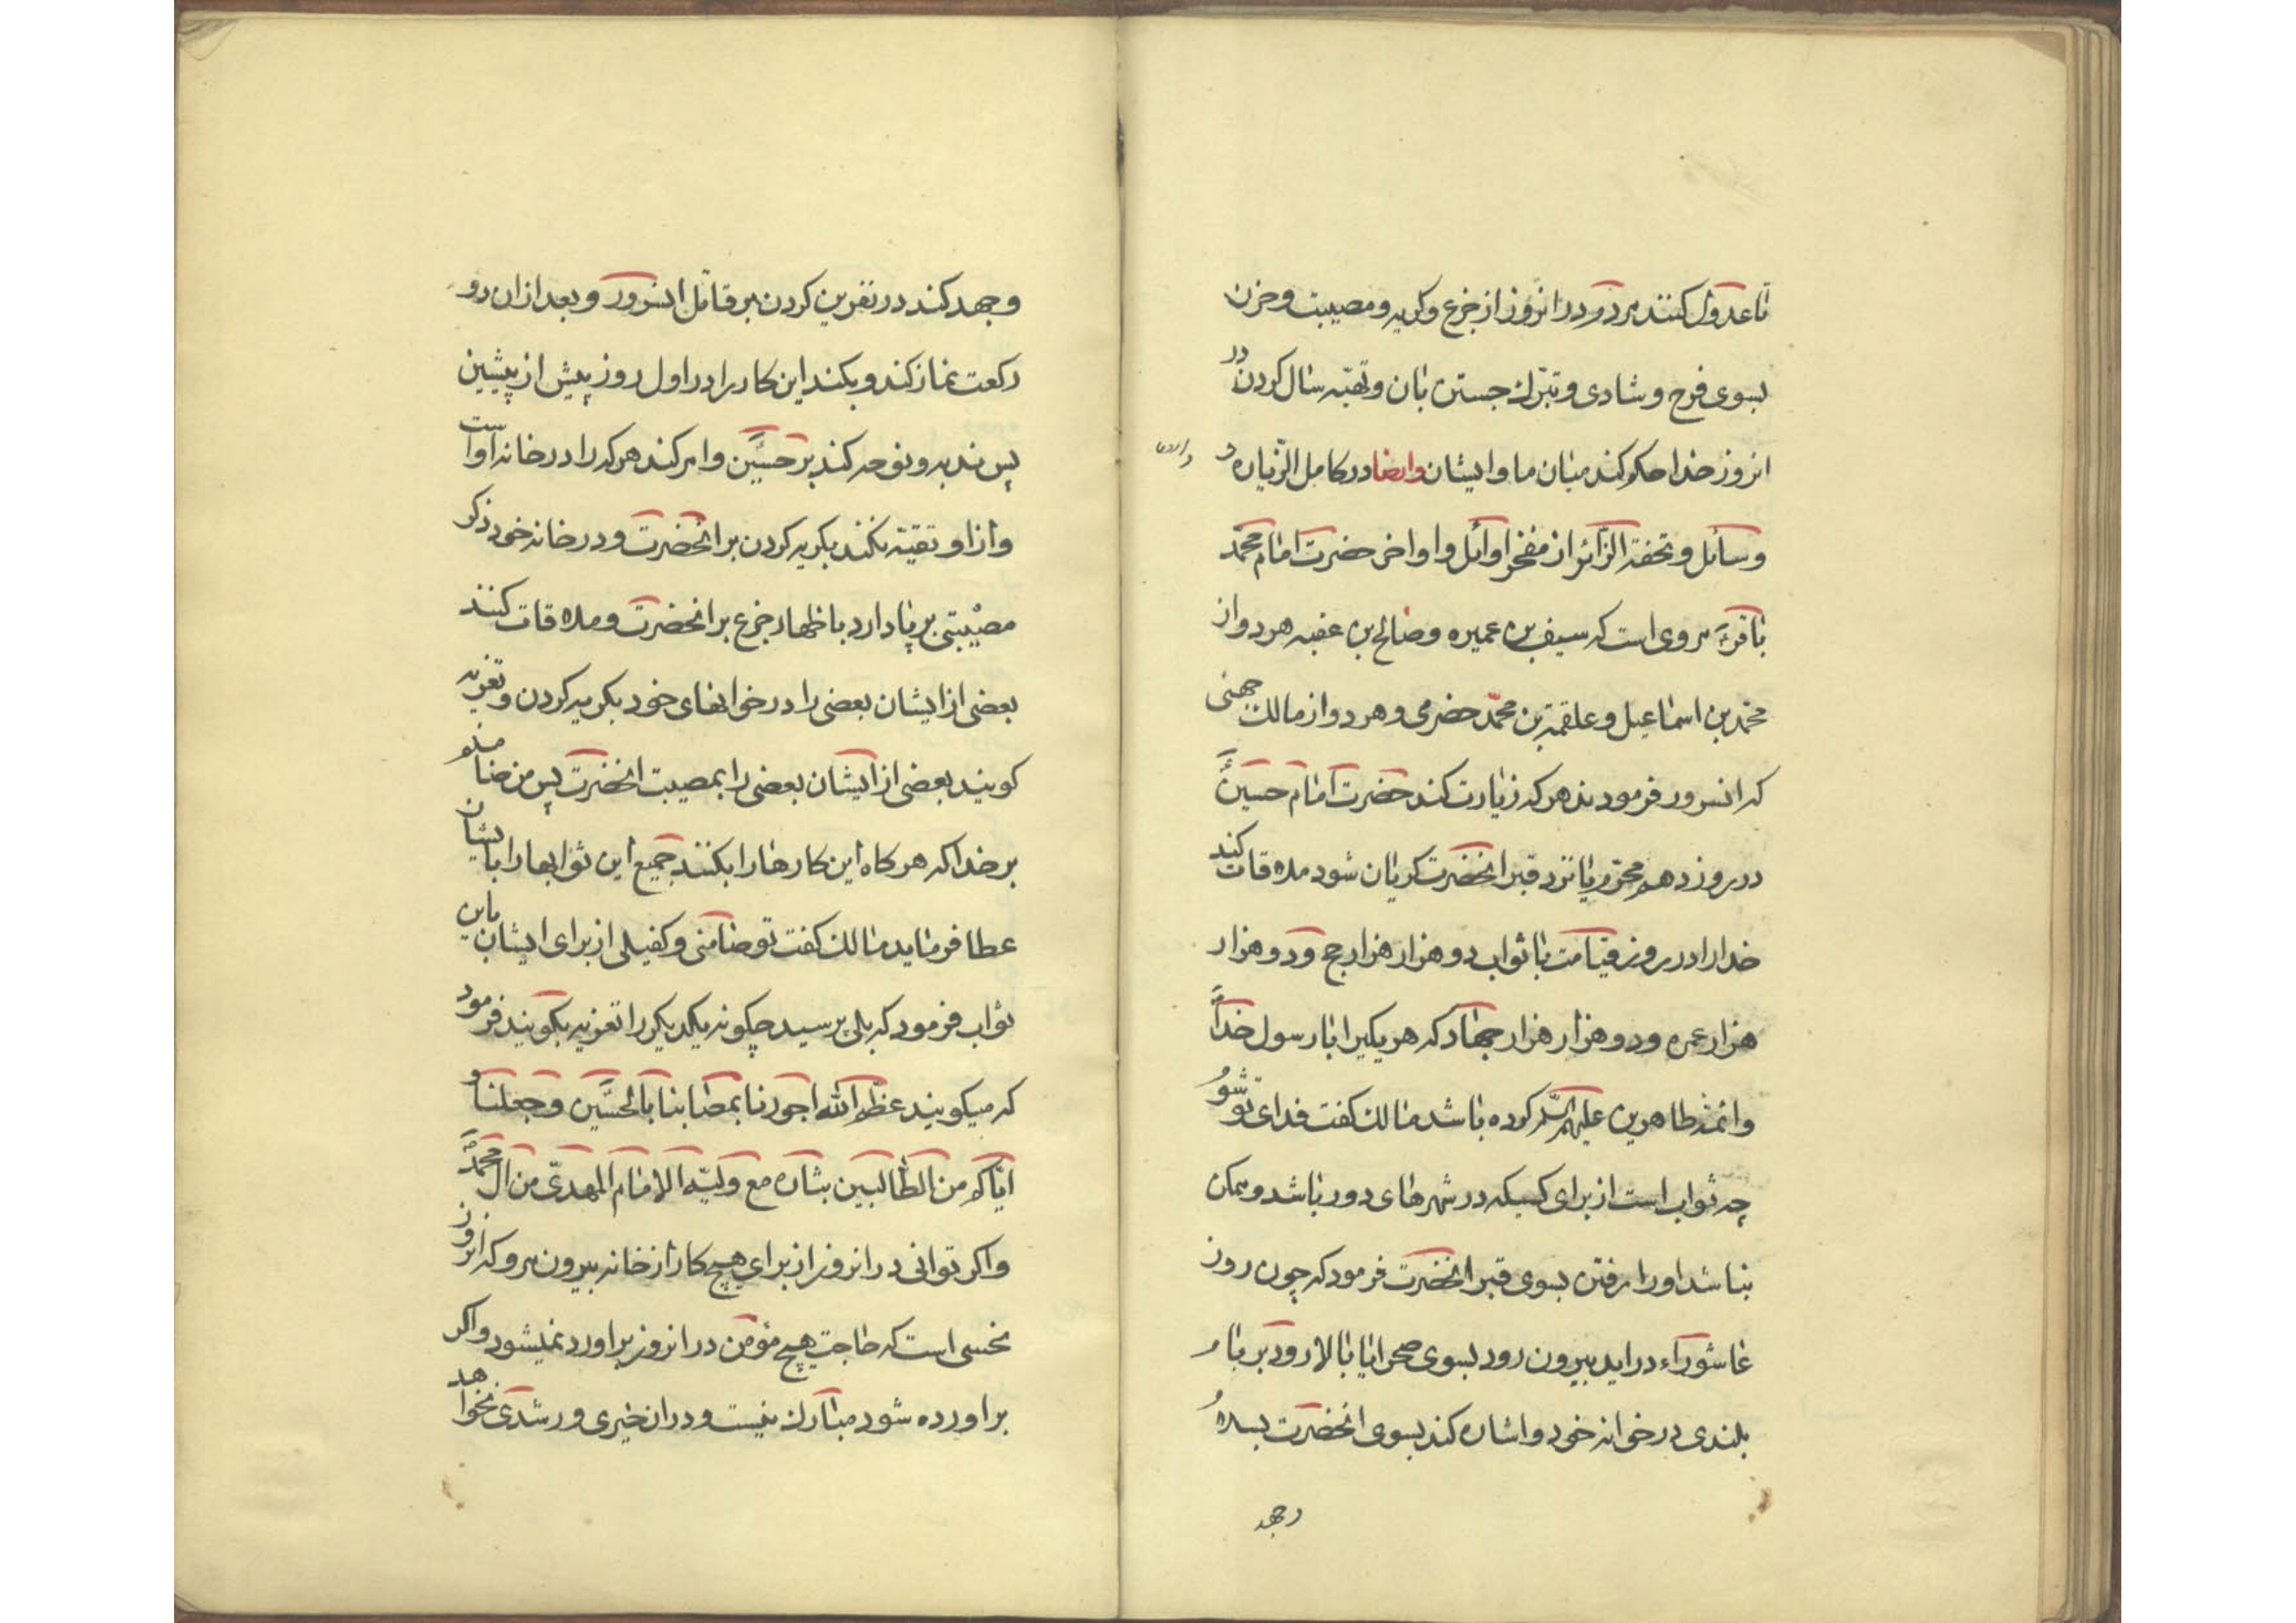 تا عدول کنند مردم در انروز از جزع و کریه و مصیبت و حزن
بسوی فرح و شادی و تبرک جستن بان و تهیّه سال کردن در
انروز خدا حکم کند میان ما و ایشان وایضا در کامل الزّیاره و
وسائل و تحفة الزّائر از مفخر اوائل و اواخر حضرت امام محمّد
باقرؑ مروی است که سیف بن عمیره و صالح بن عقبه هر دو از
محمّد بن اسماعیل و علقمة بن محمّد حضرمی و هر دو از مالک جهنی
که انسرور فرمودند هر که زیارت کند حضرت امام حسینؑ
در روز دهم محرّم یا نزد قبر انحضرت کریان شود ملاقات کند
خدا را در روز قیامت با ثواب دو هزار هزار حج و دو هزار
هزار عمره و دو هزار هزار جهاد که هر یکیرا با رسول خداؐ
و ائمّه طاهرین علیهم السّلم کرده باشد مالک کفت فدای تو شوم
چه ثواب است از برای کسیکه در شهرهای دور باشد و ممکن
نباشد او را رفتن بسوی قبر انحضرت فرمود که چون روز
عاشوراء در اید بیرون رود بسوی صحرا یا بالا رود بر بام
بلندی در خوانه خود و اشاره کند بسوی انحضرت بسلام
وجهد
وجهد کند در نفرین کردن بر قاتل انسرور و بعد از ان دو
رکعت نماز کند و بکند این کار را در اول روز پیش از پیشین
پس ندبه و نوحه کند بر حسینؑ و امر کند هر که را در خانه او است
و از او تقیّه نکند بکریه کردن بر انحضرت و در خانه خود ذکر
مصیبتی بر پا دارد با ظهار جزع بر انحضرت و ملاقات کنند
بعضی از ایشان بعضی را در خوانهای خود بکریه کردن و تعزیه
کویند بعضی از ایشان بعضی را بمصیبت انحضرت پس من ضامنم
بر خدا که هر کاه این کارها را بکنند جمیع این ثوابها را بایشان
عطا فرماید مالک کفت تو ضامنی و کفیلی از برای ایشان باین
ثواب فرمود که بلی پرسید چکونه یکدیکر را تعزیه بکویند فرمود
که میکویند عظّم الله اجورنا بمصابنا بالحسین و جعلنا و
ایّاکم من الطّالبین بثاره مع ولیّه الامام المهدیّ من ال محمّدؐ
و اکر توانی در انروز از برای هیچ کار از خانه بیرون مرو که انروز
نحسی است که حاجت هیچ مؤمن در انروز براورد نمیشود و اکر
براورده شود مبارک نیست و در ان خیری و رشدی نخواهد